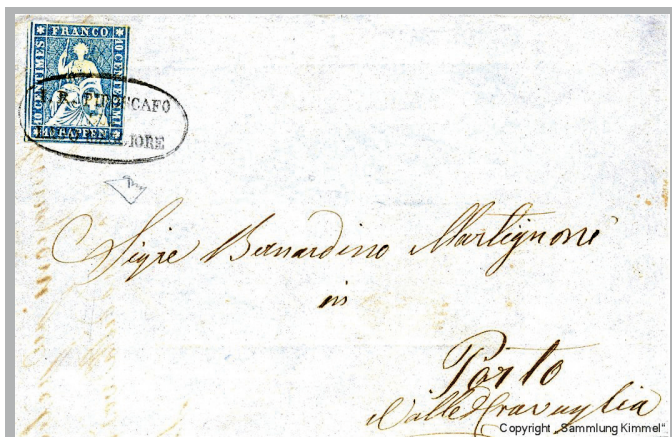 FRANCO
10 CENTIMES
10 CENTESIMI
RAPPEN
I. R. PIROSCAFO
Sigre Bernardino Martignoni
in
Porto
Valle Travaglia
Copyright „Sammlung Kimmel"